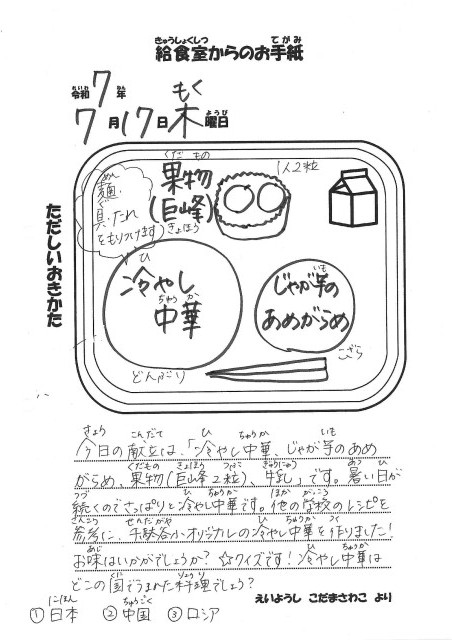 きゅうしょくしつ てがみ
給食室からのお手紙
れいわ ねん もく
令和7年
がつ にち ようび
7月17日木曜日
ただしいおきかた
めん
麺、
ぐ
具、たれ
をもりつけます
くだ もの
果物
(巨峰)
きょほう
1人2粒
ひ
冷やし
ちゅう か
中華
いも
じゃが芋の
あめがらめ
どんぶり
こざら
きょう こんだて ひ ちゅうか いも
今日の献立は、「冷やし中華、じゃが芋のあめ
くだもの きょほう つぶ ぎゅうにゅう あつ ひ
がらめ、果物(巨峰2粒)、牛乳」です。暑い日が
つづ ひ ちゅうか ほか がっこう
続くのでさっぱりと冷やし中華です。他の学校のレシピを
さんこう せんだがや ひ ちゅうか つく
参考に、千駄谷小オリジナルの冷やし中華を作りました!
あじ ひ ちゅうか
お味はいかがでしょうか?☆クイズです!冷やし中華は
くに りょうり
どこの国でうまれた料理でしょう?
えいようし こだまさわこ より
にほん ちゅうごく
①日本 ②中国 ③ロシア